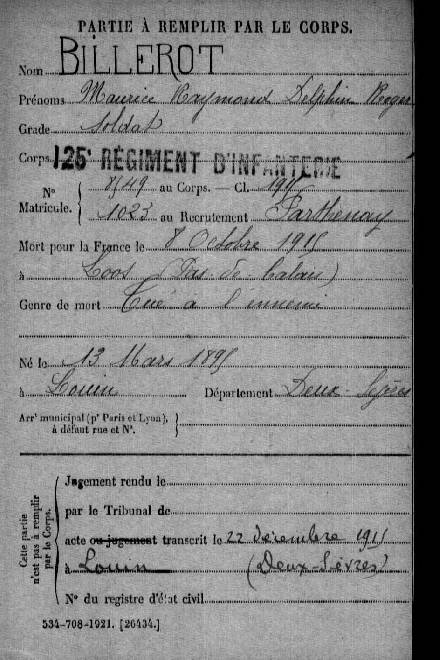 PARTIE À REMPLIR PAR LE CORPS.
Nom BILLEROT
Prénoms Maurice Raymond Delphin Roger
Grade Soldat
Corps 125e RÉGIMENT D'INFANTERIE
N° Matricule. { 8549 au Corps. — Cl. 1915
1023 au Recrutement Parthenay
Mort pour la France le 8 Octobre 1915
à Loos (Pas-de-Calais)
Genre de mort Tué à l'ennemi
Né le 13 Mars 1895
à Louin Département Deux-Sèvres
Arrt municipal (pr Paris et Lyon), à défaut rue et N°. }
Cette partie n'est pas à remplir par le Corps.
Jugement rendu le
par le Tribunal de
acte ou jugement transcrit le 22 décembre 1915
à Louin (Deux-Sèvres)
N° du registre d'état civil
534-708-1921. [26434.]